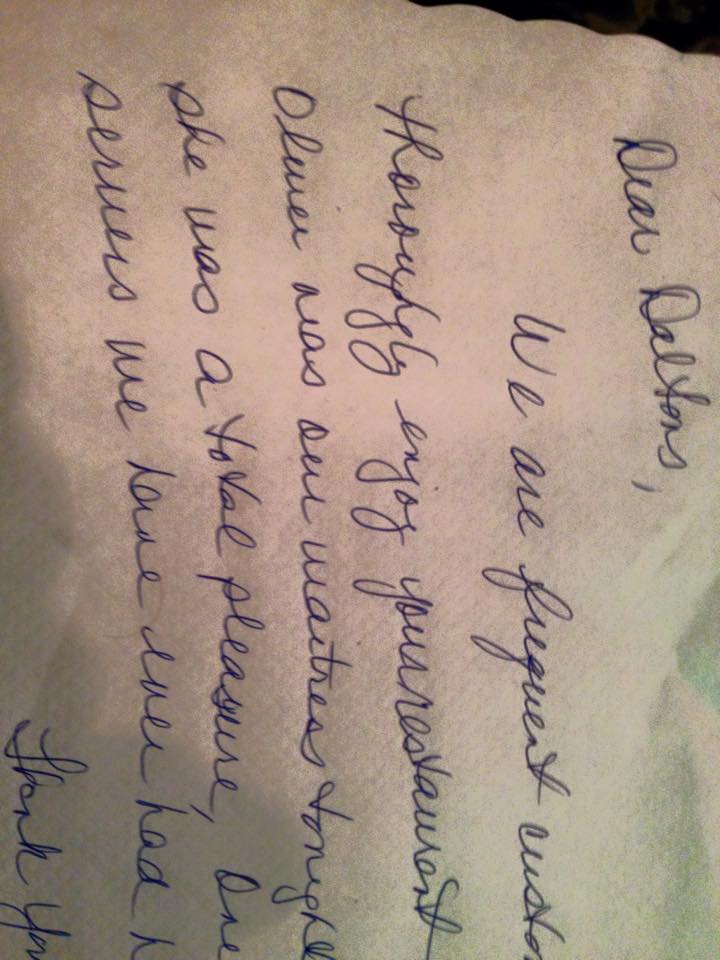 Dear Daltons,
We are frequent custo
thoroughly enjoy your restaurant
Oliver was our waitress tonight
she was a total pleasure, One
servers we have ever had h
Thank You